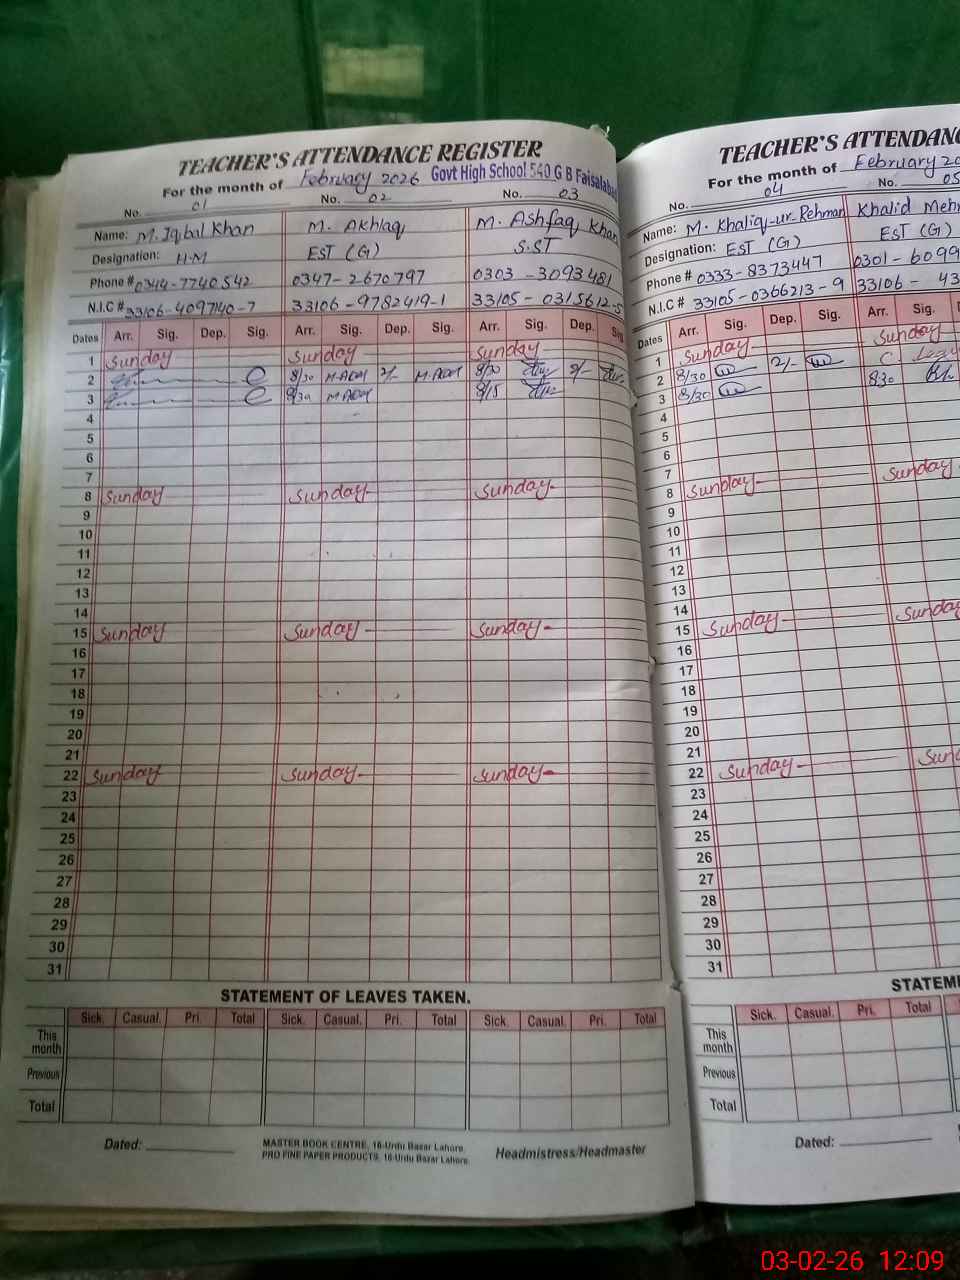 TEACHER'S ATTENDANCE REGISTER
For the month of February 2026 Govt High School 540 G B Faisalabad
No. 01 No. 02 No. 03
Name: M. Iqbal Khan M. Akhlaq M. Ashfaq Khan
Designation: H.M EST (G) S.ST
Phone # 0344-7740542 0347-2670797 0303-3093481
N.I.C # 33106-4097140-7 33106-9782419-1 33105-0315612-5
Dates Arr. Sig. Dep. Sig. Arr. Sig. Dep. Sig. Arr. Sig. Dep. Sig
1 Sunday Sunday Sunday
2 8/30 2/- 8/30 2/-
3 8/30 8/15
4
5
6
7
8 Sunday Sunday Sunday
9
10
11
12
13
14
15 Sunday Sunday Sunday
16
17
18
19
20
21
22 Sunday Sunday Sunday
23
24
25
26
27
28
29
30
31
STATEMENT OF LEAVES TAKEN.
Sick. Casual. Pri. Total Sick. Casual. Pri. Total Sick. Casual. Pri. Total
This month
Previous
Total
Dated:
MASTER BOOK CENTRE, 16-Urdu Bazar Lahore.
PRO FINE PAPER PRODUCTS, 16-Urdu Bazar Lahore.
Headmistress/Headmaster
TEACHER'S ATTENDANC
For the month of February 20
No. 04 No. 05
Name: M. Khaliq-ur-Rehman Khalid Mehm
Designation: EST (G) EST (G)
Phone # 0333-8373447 0301-6099
N.I.C # 33105-0366213-9 33106-43
Dates Arr. Sig. Dep. Sig. Arr. Sig.
1 Sunday Sunday
2 8/30 2/- C.
3 8/30 830
4
5
6
7
8 Sunday Sunday
9
10
11
12
13
14
15 Sunday Sunday
16
17
18
19
20
21
22 Sunday Sund
23
24
25
26
27
28
29
30
31
STATEM
Sick. Casual. Pri. Total
This month
Previous
Total
Dated:
03-02-26 12:09